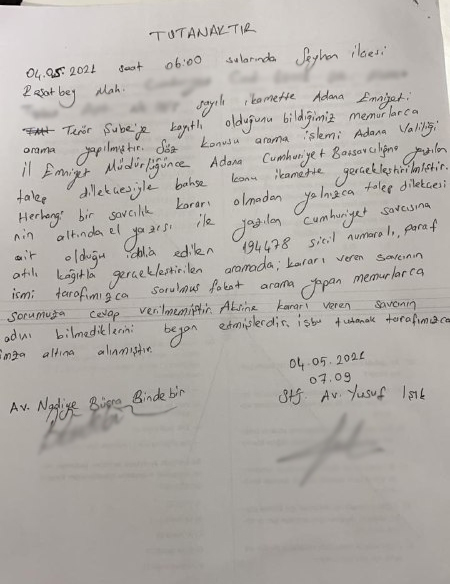 TUTANAKTIR
04.05.2021 saat 06:00 sularında Seyhan ilçesi
Reşatbey Mah.
sayılı ikamette Adana Emniyeti
Terör Şubeye kayıtlı olduğunu bildiğimiz memurlarca
arama yapılmıştır. Söz konusu arama işlemi Adana Valiliği
il Emniyet Müdürlüğünce Adana Cumhuriyet Başsavcılığına yazılan
talep dilekçesiyle bahse konu ikamette gerçekleştirilmiştir.
Herhangi bir savcılık kararı olmadan yalnızca talep dilekçesi
nin altında el yazısı ile yazılan Cumhuriyet savcısına
ait olduğu iddia edilen 194478 sicil numaralı, paraf
atılı kağıtla gerçekleştirilen aramada; kararı veren savcının
ismi tarafımızca sorulmuş fakat arama yapan memurlarca
sorumuza cevap verilmemiştir. Aksine kararı veren savcının
adını bilmediklerini beyan etmişlerdir. işbu tutanak tarafımızca
imza altına alınmıştır.
04.05.2021
07.09
Av. Nadiye Büşra Bindebir
Stj. Av. Yusuf Işık